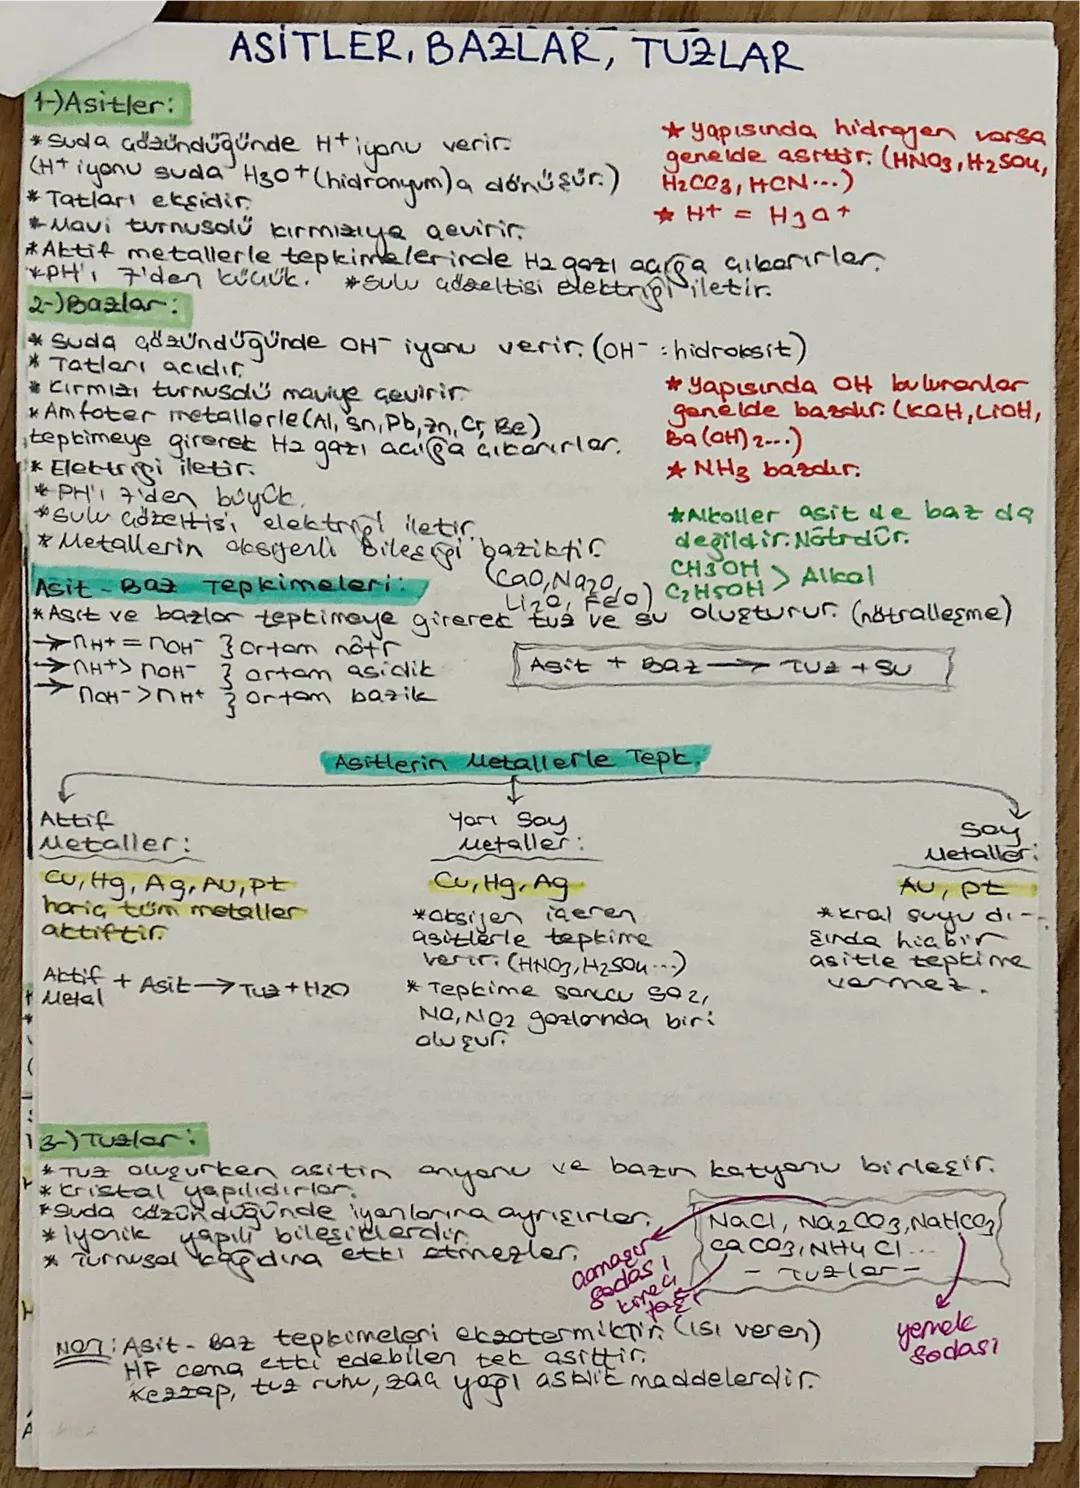 ASİTLER, BAZLAR, TUZLAR
1-) Asitler:
* Suda çözündüğünde H+ iyonu verir.
(H+ iyonu suda H3O+ (hidronyum)a dönüşür.)
* Tatları ekşidir.
* Mavi turnusolü kırmızıya çevirir.
* Aktif metallerle tepkimelerinde H2 gazı açığa çıkarırlar.
* PH'ı 7'den küçük. * Sulu çözeltisi elektriği iletir.
* Yapısında hidrojen varsa
genelde asittir. (HNO3, H2SO4,
H2CO3, HCN...)
* H+ = H3O+
2-) Bazlar:
* Suda çözündüğünde OH- iyonu verir. (OH- : hidroksit)
* Tatları acıdır.
* Kırmızı turnusolü maviye çevirir.
* Amfoter metallerle (Al, Sn, Pb, Zn, Cr, Be)
tepkimeye girerek H2 gazı açığa çıkarırlar.
* Elektriği iletir.
* PH'ı 7'den büyük.
* Sulu çözeltisi elektriği iletir.
* Metallerin oksijenli bileşiği baziktir.
(CaO, Na2O,
Li2O, FeO)
* Yapısında OH bulunanlar
genelde bazdır. (KOH, LiOH,
Ba(OH)2...)
* NH3 bazdır.
* Alkoller asit de baz da
değildir. Nötrdür.
CH3OH
C2H5OH > Alkol
Asit - Baz Tepkimeleri:
* Asit ve bazlar tepkimeye girerek tuz ve su oluşturur. (nötralleşme)
→ nH+ = nOH- } Ortam nötr
→ nH+ > nOH- } ortam asidik
→ nOH- > nH+ } Ortam bazik
Asit + Baz → Tuz + Su
Asitlerin Metallerle Tepk.
Aktif
Metaller:
Cu, Hg, Ag, Au, Pt
hariç tüm metaller
aktiftir.
Aktif
Metal + Asit → Tuz + H2O
Yarı Soy
Metaller:
Cu, Hg, Ag
* Oksijen içeren
asitlerle tepkime
verir. (HNO3, H2SO4...)
* Tepkime sonucu SO2,
NO, NO2 gazlarında biri
oluşur.
Soy
Metaller:
Au, Pt
* Kral suyu dı-
şında hiçbir
asitle tepkime
vermez.
3-) Tuzlar:
* Tuz oluşurken asitin anyonu ve bazın katyonu birleşir.
* Kristal yapılıdırlar.
* Suda çözündüğünde iyonlarına ayrışırlar.
* İyonik yapılı bileşiklerdir.
* Turnusol kağıdına etki etmezler.
NaCl, Na2CO3, NaHCO3
CaCO3, NH4Cl...
- Tuzlar -
çamaşır
sodası
kireç
taşı
yemek
sodası
NOT: Asit - Baz tepkimeleri ekzotermiktir. (ısı veren)
HF cama etki edebilen tek asittir.
Kezzap, tuz ruhu, zaç yağı asidik maddelerdir.